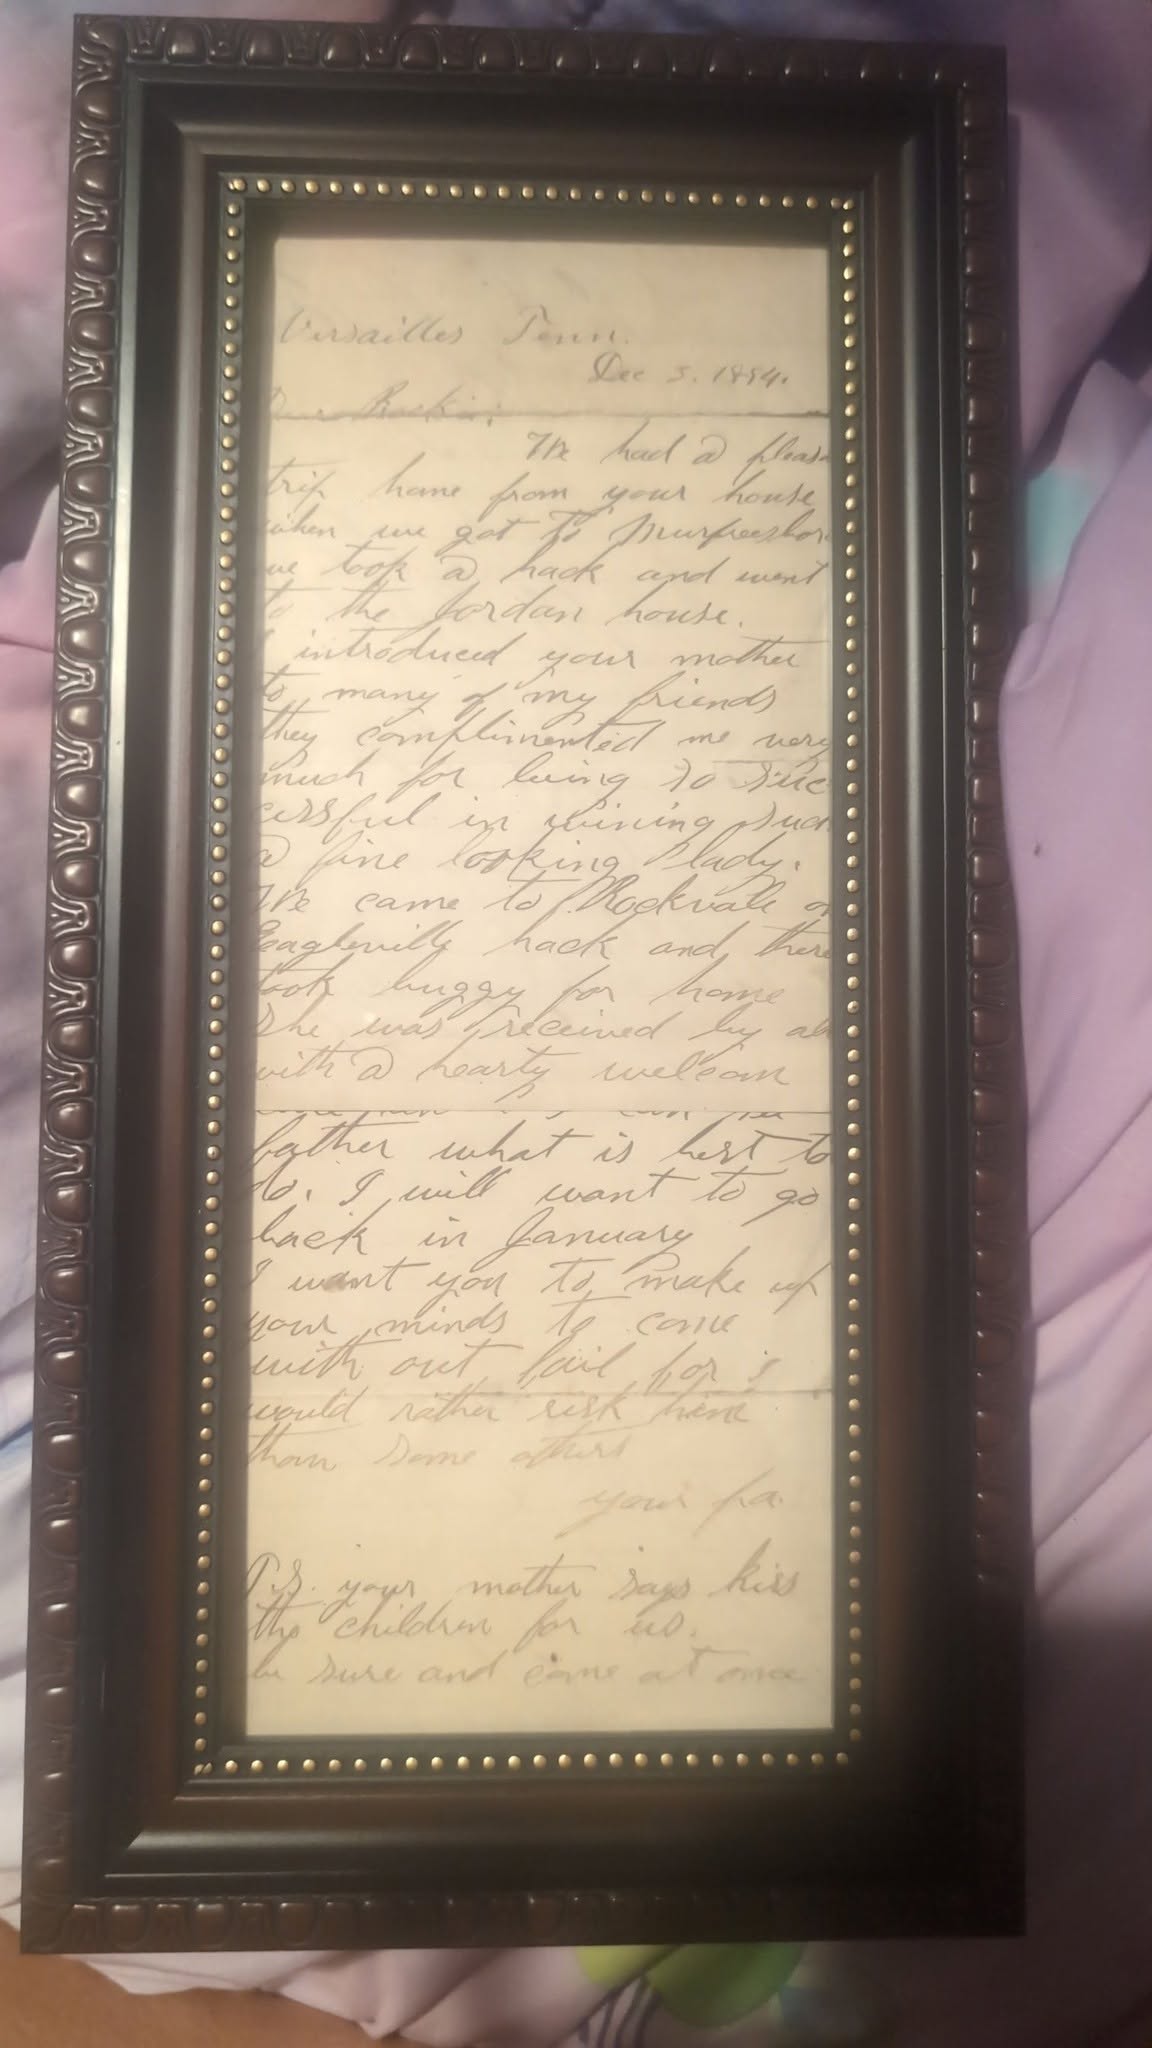 Versailles Tenn.
Dec 3. 1894.
We had a pleasa
trip home from your house
when we got to Murfreesbor
we took a hack and went
to the Jordan house.
I introduced your mother
to many of my friends
they complimented me very
much for being so suc
cessful in wining such
a fine looking lady.
We came to Rockvale on
Eagleville hack and there
took buggy for home
She was received by all
with a hearty welcom
father what is best to
do. I will want to go
back in January
I want you to make up
your minds to come
with out fail for i
would rather risk him
than some others
your pa.
P.S. your mother says kiss
the children for us.
be sure and come at once